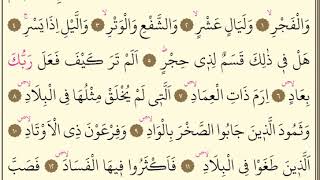 وَالْفَجْرِۙ ﴿١﴾ وَلَيَالٍ عَشْرٍۙ ﴿٢﴾ وَالشَّفْعِ وَالْوَتْرِۙ ﴿٣﴾ وَالَّيْلِ اِذَا يَسْرِۚ ﴿٤﴾
هَلْ فٖي ذٰلِكَ قَسَمٌ لِذٖي حِجْرٍؕ ﴿٥﴾ اَلَمْ تَرَ كَيْفَ فَعَلَ رَبُّكَ
بِعَادٍۙ ﴿٦﴾ اِرَمَ ذَاتِ الْعِمَادِۙ ﴿٧﴾ اَلَّتٖي لَمْ يُخْلَقْ مِثْلُهَا فِي الْبِلَادِۙ ﴿٨﴾
وَثَمُودَ الَّذٖينَ جَابُوا الصَّخْرَ بِالْوَادِۙ ﴿٩﴾ وَفِرْعَوْنَ ذِي الْاَوْتَادِۙ ﴿١٠﴾
اَلَّذٖينَ طَغَوْا فِي الْبِلَادِۙ ﴿١١﴾ فَاَكْثَرُوا فٖيهَا الْفَسَادَۙ ﴿١٢﴾ فَصَبَّ